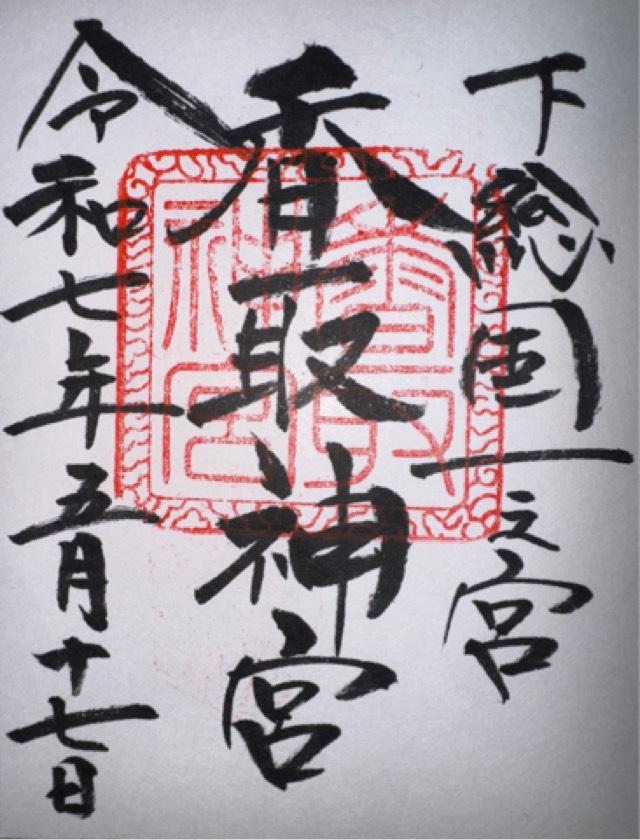 下総国一之宮
香取神宮
令和七年五月十七日
香取神宮